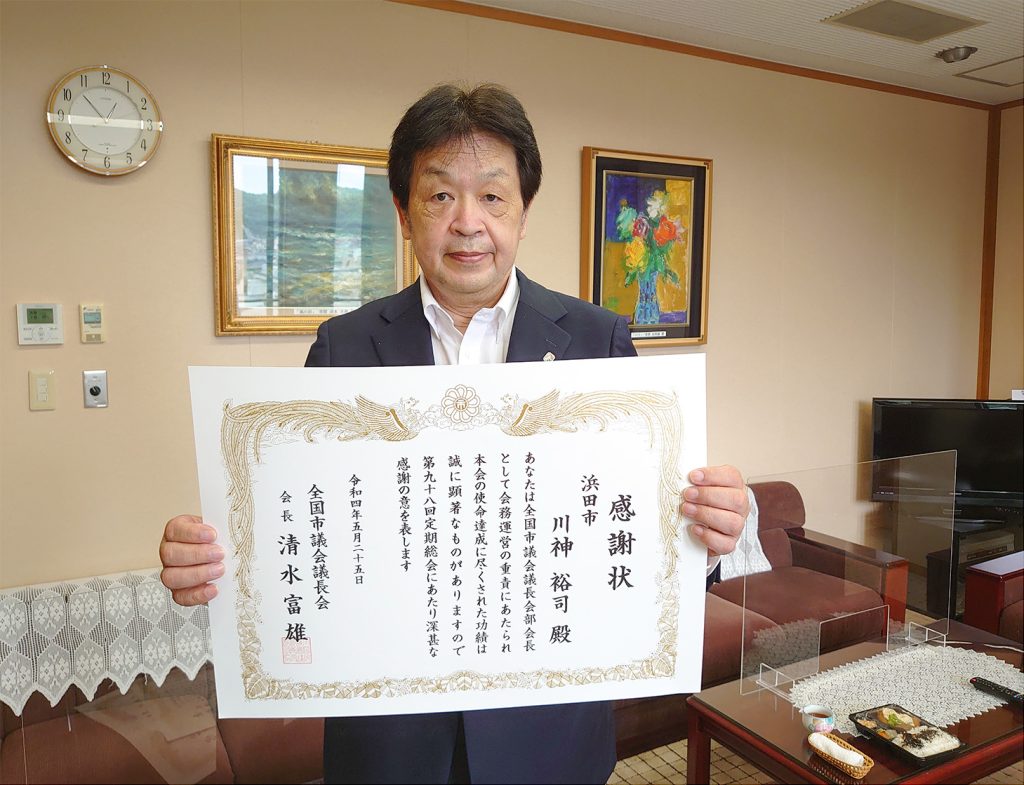 感謝状
浜田市
川神 裕司 殿
あなたは全国市議会議長会部会長
として会務運営の重責にあたられ
本会の使命達成に尽くされた功績は
誠に顕著なものがありますので
第九十八回定期総会にあたり深甚な
感謝の意を表します
令和四年五月二十五日
全国市議会議長会
会長 清水富雄
12
1
2
3
4
5
6
7
8
9
10
11